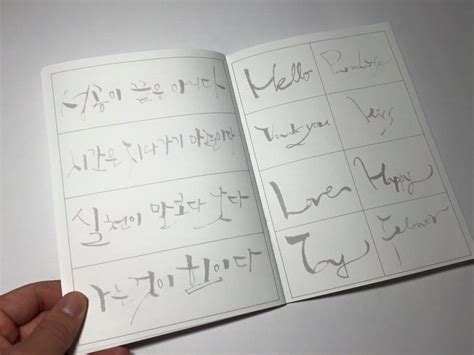 성공이 끝은 아니다
시간은 지나가기 마련이다
실천이 말보다 낫다
아는 것이 힘이다
Hello
Thank you
Kiss
Love
Happy
Joy